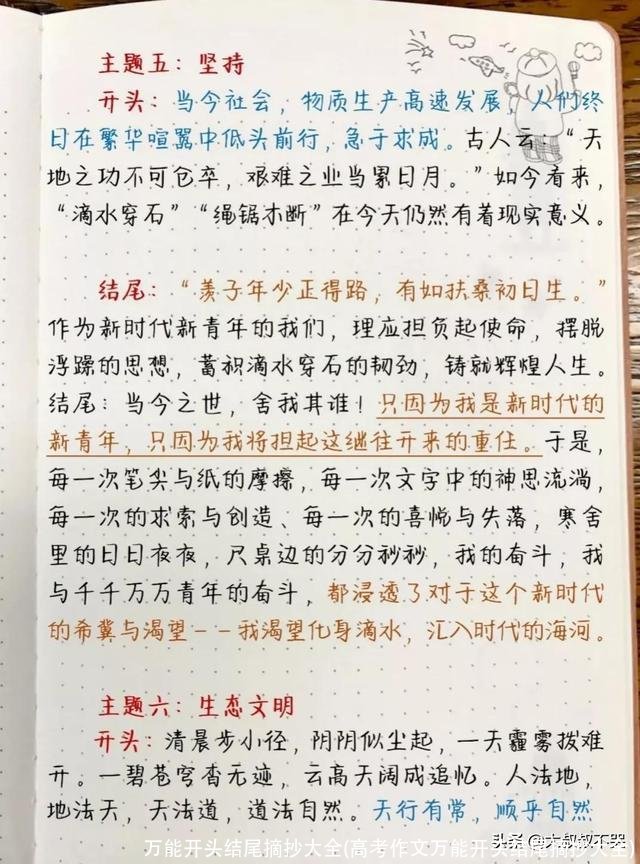 主题五：坚持
开头：当今社会，物质生产高速发展，人们终
日在繁华喧嚣中低头前行，急于求成。古人云：“天
地之功不可仓卒，艰难之业当累日月。”如今看来，
“滴水穿石”“绳锯木断”在今天仍然有着现实意义。
结尾：“羡子年少正得路，有如扶桑初日生。”
作为新时代新青年的我们，理应担负起使命，摆脱
浮躁的思想，蓄积滴水穿石的韧劲，铸就辉煌人生。
结尾：当今之世，舍我其谁！只因为我是新时代的
新青年，只因为我将担起这继往开来的重任。于是，
每一次笔尖与纸的摩擦，每一次文字中的神思流淌，
每一次的求索与创造、每一次的喜悦与失落，寒舍
里的日日夜夜，尺桌边的分分秒秒，我的奋斗，我
与千千万万青年的奋斗，都浸透了对于这个新时代
的希冀与渴望－－我渴望化身滴水，汇入时代的海河。
主题六：生态文明
开头：清晨步小径，阴阴似尘起，一天霾雾拨难
开。一碧苍穹杳无迹，云高天阔成追忆。人法地，
地法天，天法道，道法自然。天行有常，顺乎自然
头条@大叔叔不器
万能开头结尾摘抄大全(高考作文万能开头结尾摘抄大全)